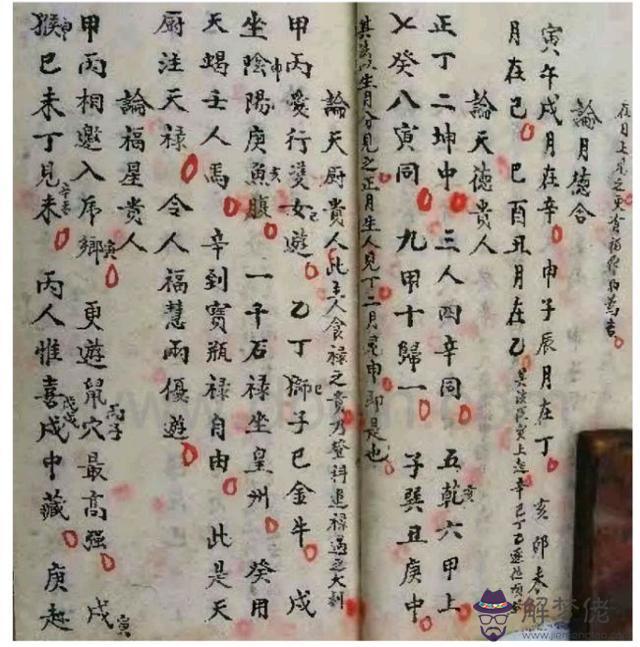 論月德合
寅午戌月在辛 申子辰月在丁 亥卯未
月在己 巳酉丑月在乙
論天德貴人
正丁二坤中 三人四辛同 五乾六甲上
七癸八寅同 九甲十歸一 子巽丑庚中
其法以生月分見之正月生人見丁二月見申即是也
論天厨貴人此主人食祿之貴乃登科進祿遇之大利
甲丙愛行雙女遊 乙丁獅子己金牛 戊
坐陰陽庚魚腹 一千石祿坐皇州 癸用
天蝎壬人馬 辛到寶瓶祿自由 此是天
厨注天祿 令人福慧兩優遊
論福星貴人
甲丙相邀入虎鄉 更遊鼠穴最高強 戊
猴己未丁見未 丙人惟喜戌中藏 庚赶
解梦佬
www.jiemenglao.com